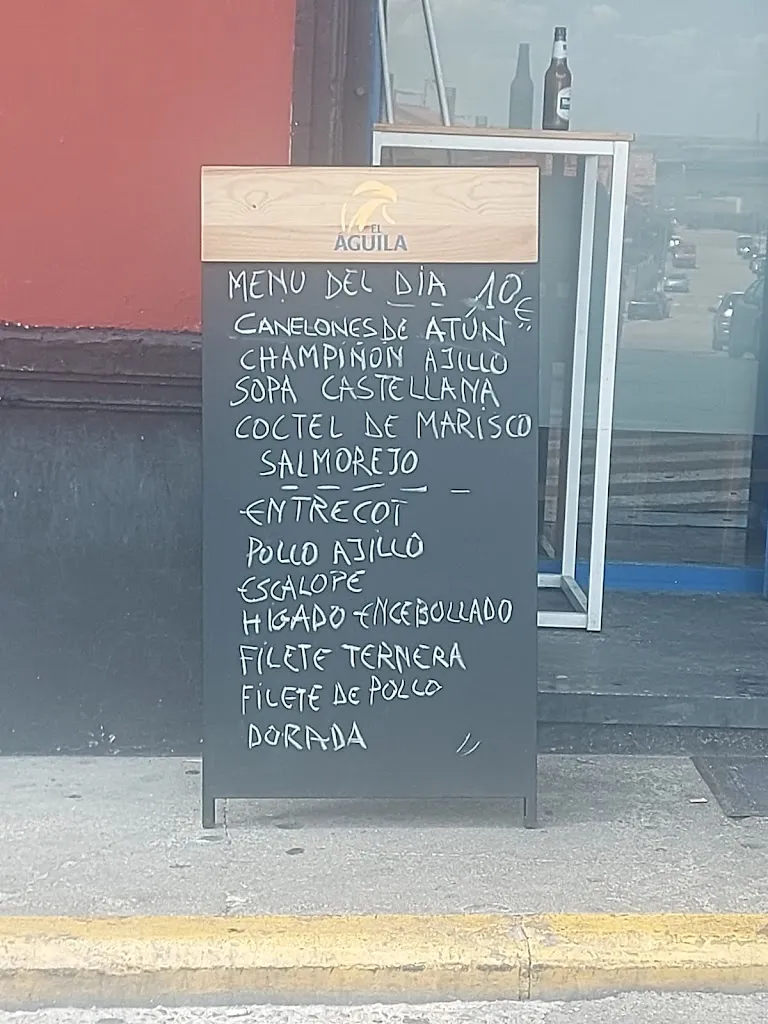 EL
ÁGUILA
MENU DEL DIA 10€
CANELONES DE ATÚN
CHAMPIÑON AJILLO
SOPA CASTELLANA
COCTEL DE MARISCO
SALMOREJO
ENTRECOT
POLLO AJILLO
ESCALOPE
HIGADO ENCEBOLLADO
FILETE TERNERA
FILETE DE POLLO
DORADA